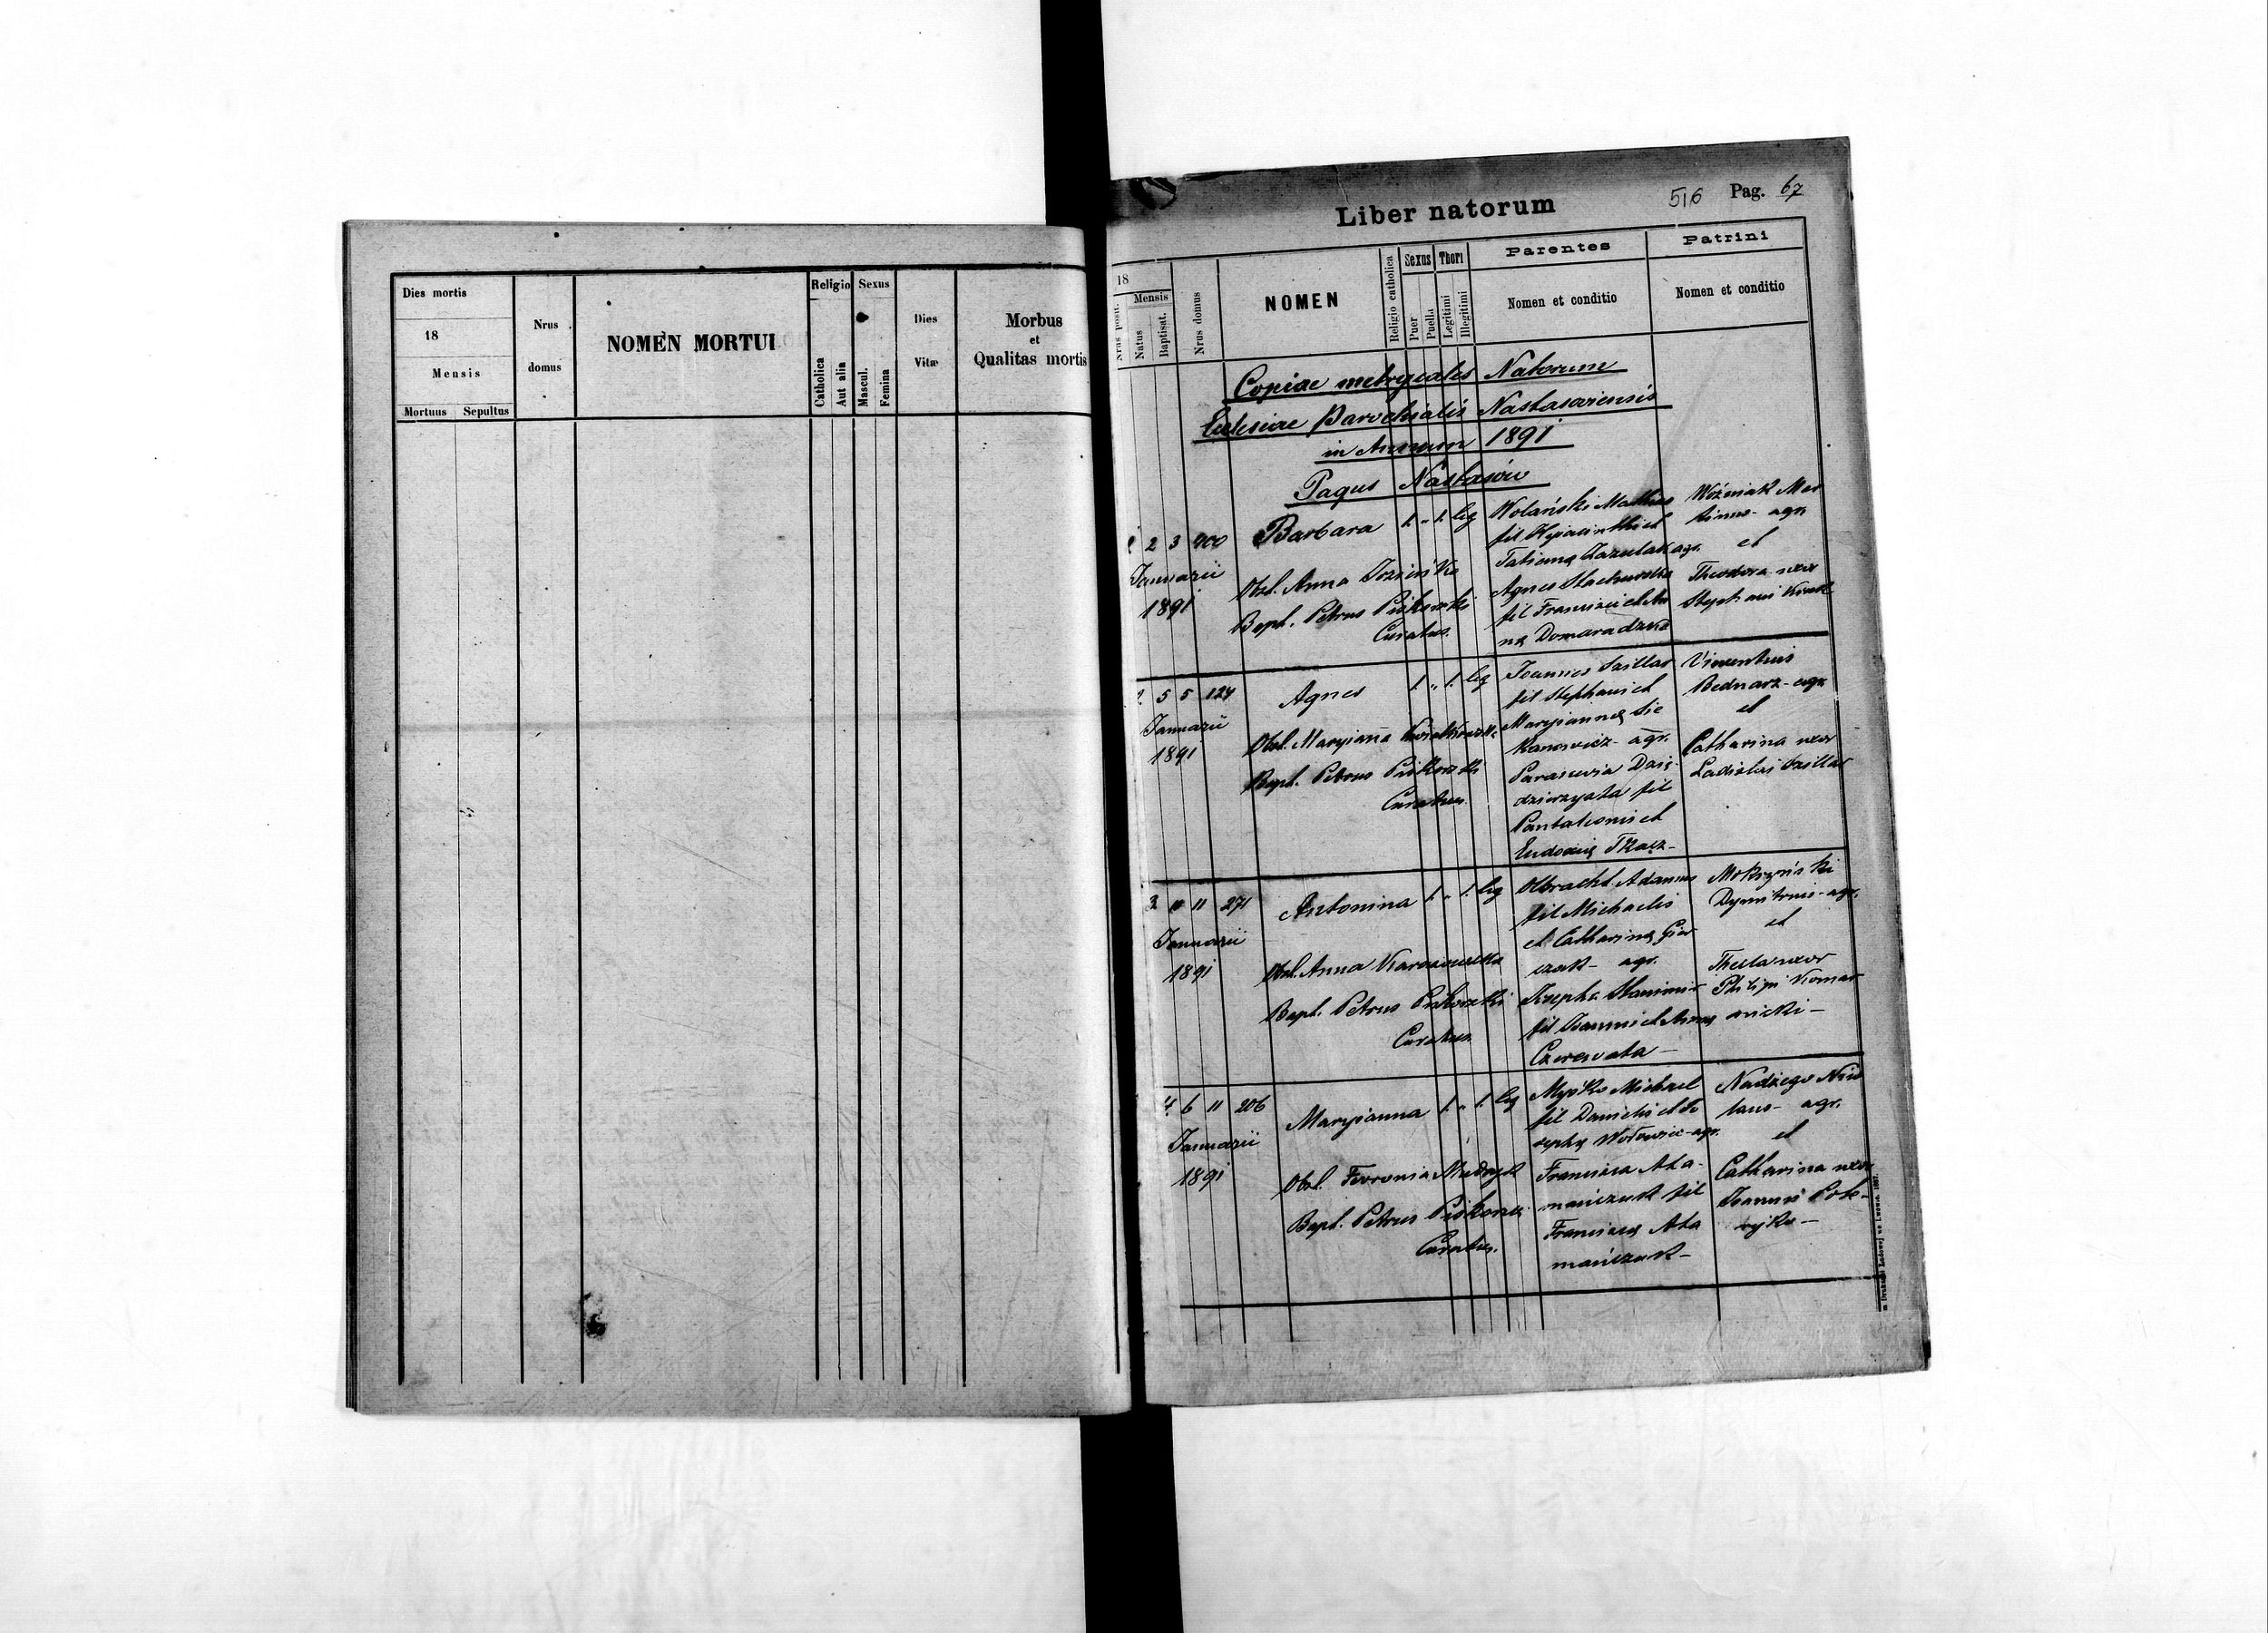 Dies mortis
18
Mensis
Mortuus Sepultus
Nrus domus
NOMEN MORTUI
Religio
Catholica
Aut alia
Sexus
Mascul.
Femina
Dies Vitæ
Morbus
et
Qualitas mortis
516 Pag. 67
Liber natorum
18
Mensis
Nrus posit.
Natus
Baptisat.
Nrus domus
NOMEN
Religio catholica
Sexus
Puer
Puella
Thori
Legitimi
Illegitimi
Parentes
Nomen et conditio
Patrini
Nomen et conditio
Copiae metrycales Natorum
Eclesiae Parochialis Nastasoviensis
in Annum 1891
Pagus Nastasów
2 3 400
Januarii
1891
Barbara 1. " 1. leg
Obst. Anna
Bapt. Petrus Piskorski
Curatus.
Wolański Mathias
fil Hyacinthi et
Tatianę Tazulak agr.
Agnes Stachurska
fil Francisci et An
nę Domaradzka
Woźniak Mar
tinus - agr.
et
Theodora uxor
Stephani
2. 5 5 124
Januarii
1891
Agnes 1. " 1. leg
Obst. Maryianna Kwiatkowska
Bapt. Petrus Piskorski
Curatus.
Joannes Szillar
fil Stephani et
Maryiannę Sie
kanowicz - agr.
Parascevia Dzie
dzierzyata fil
Pantaleonis et
Eudociię Tkacz -
Vincentius
Bednarz - agr.
et
Catharina uxor
Ladislai Szillar
3. 11 11 271
Januarii
1891
Antonina 1. " 1. leg
Obst. Anna Karaszewska
Bapt. Petrus Piskorski
Curatus.
Olbracht Adamus
fil Michaelis
et Catharinę Gier
czak - agr.
Josepha Stanimir
fil Joanni et Annę
Czerewata -
Mokrzyński
Dymitrius - agr.
et
Thecla uxor
Philipi Komar
nicki -
4. 6 11 206
Januarii
1891
Maryianna 1. " 1. leg
Obst. Fevronia Mudryk
Bapt. Petrus Piskorski
Curatus.
Myśko Michael
fil Danielis et Jo
sephę Wołowiec - agr.
Francisca Ata-
mańczuk fil
Franciscę Ata
mańczuk -
Nadżego Nico
laus - agr.
et
Catharina uxor
Joannis Poto-
ryjko -